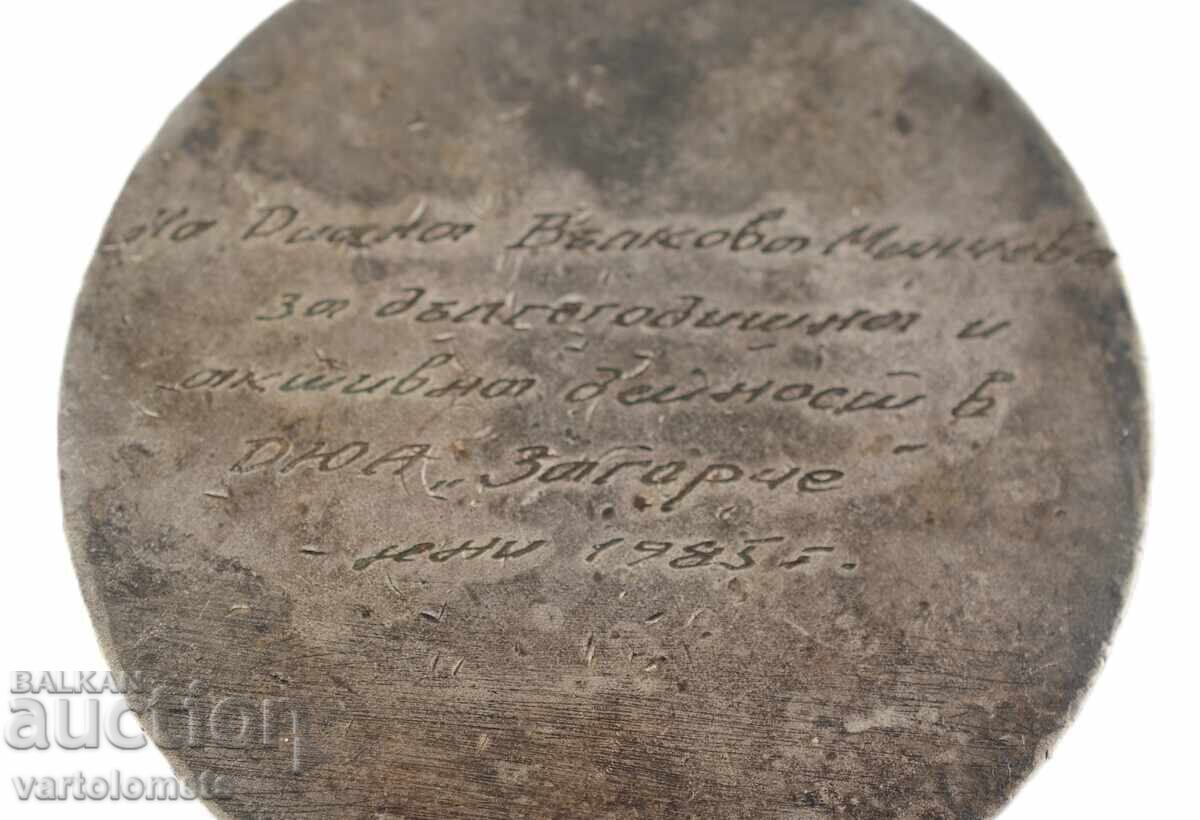 На Диана Вълкова Минчева
за дългогодишна и
активна дейност в
ДЮА „Загорче
юни 1985 г.
BALKAN
auction
vartolomets